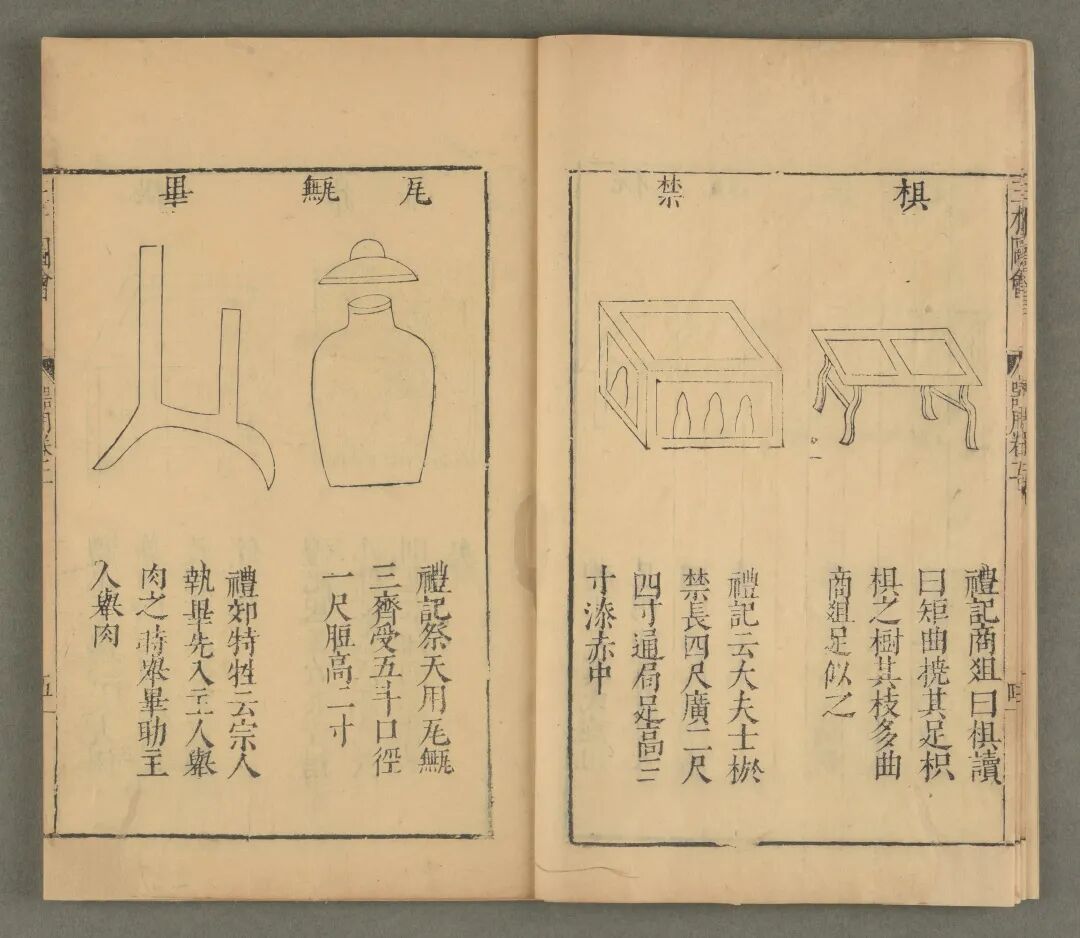 三才圖會
器用卷
四
椇
禮記商俎曰椇讀
曰矩曲撓其足枳
椇之樹其枝多曲
商俎足似之
禁
禮記云大夫士棜
禁長四尺廣二尺
四寸通局足高三
寸漆赤中
瓦甒
禮記祭天用瓦甒
三齊受五斗口徑
一尺脰高二寸
畢
禮郊特牲云宗人
執畢先入主人舉
肉之時舉畢助主
人舉肉
圖會
器用卷
五